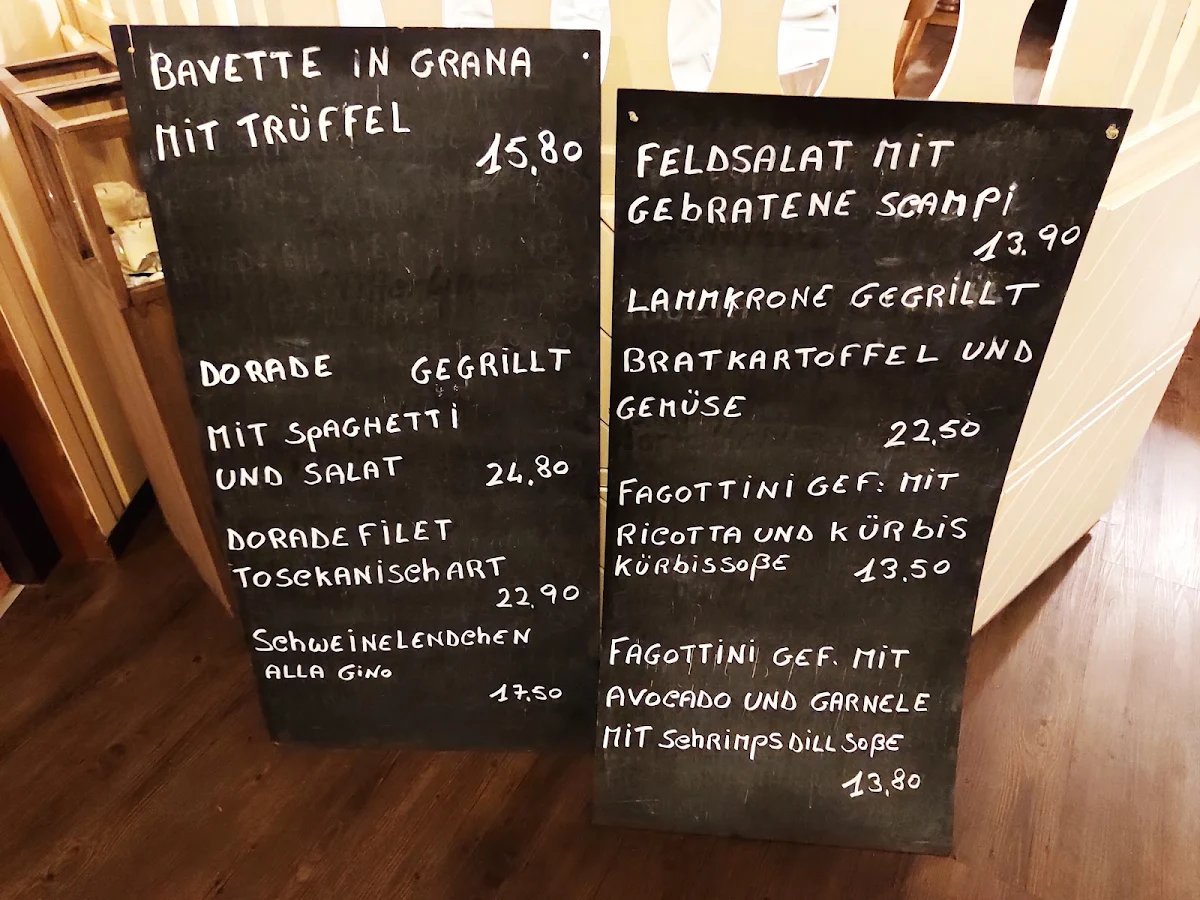 BAVETTE IN GRANA
MIT TRÜFFEL
15,80
DORADE GEGRILLT
MIT SPAGHETTI
UND SALAT 24.80
DORADE FILET
TOSCKANISCH ART
22,90
SCHWEINELENDCHEN
ALLA GINO
17,50
FELDSALAT MIT
GEBRATENE SCAMPI
13.90
LAMMKRONE GEGRILLT
BRATKARTOFFEL UND
GEMÜSE
22,50
FAGOTTINI GEF: MIT
RICOTTA UND KÜRBIS
KÜRBISSOßE 13.50
FAGOTTINI GEF. MIT
AVOCADO UND GARNELE
MIT SCHRIMPS DILL SOßE
13,80